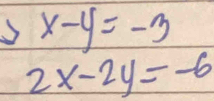 x-y=-3
2x-2y=-6